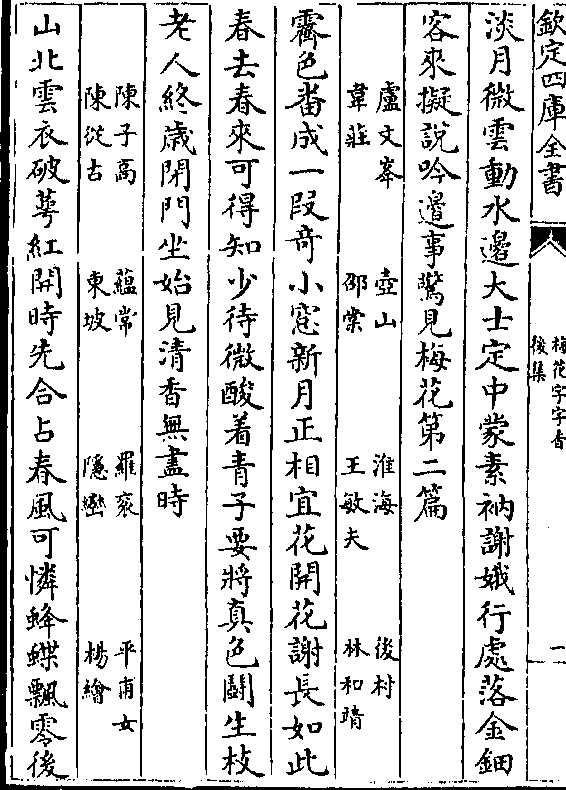 欽定四庫全書
梅花字字香
後集
二
淡月微雲動水邊大士定中蒙素衲謝娥行處落金鈿
客來擬說吟邊事驚見梅花第二篇
盧文峯 壺山 淮海 後村
韋莊 邵棠 王敏夫 林和靖
霽色畨成一段竒小窓新月正相宜花開花謝長如此
春去春來可得知少待微酸着青子要將真色鬭生枝
老人終歲閉門坐始見清香無盡時
陳子高 蘊常 羅衮 平甫女
陳從古 東坡 隱巒 楊繪
山北雲衣破萼紅開時先合占春風可憐蜂蝶飄零後